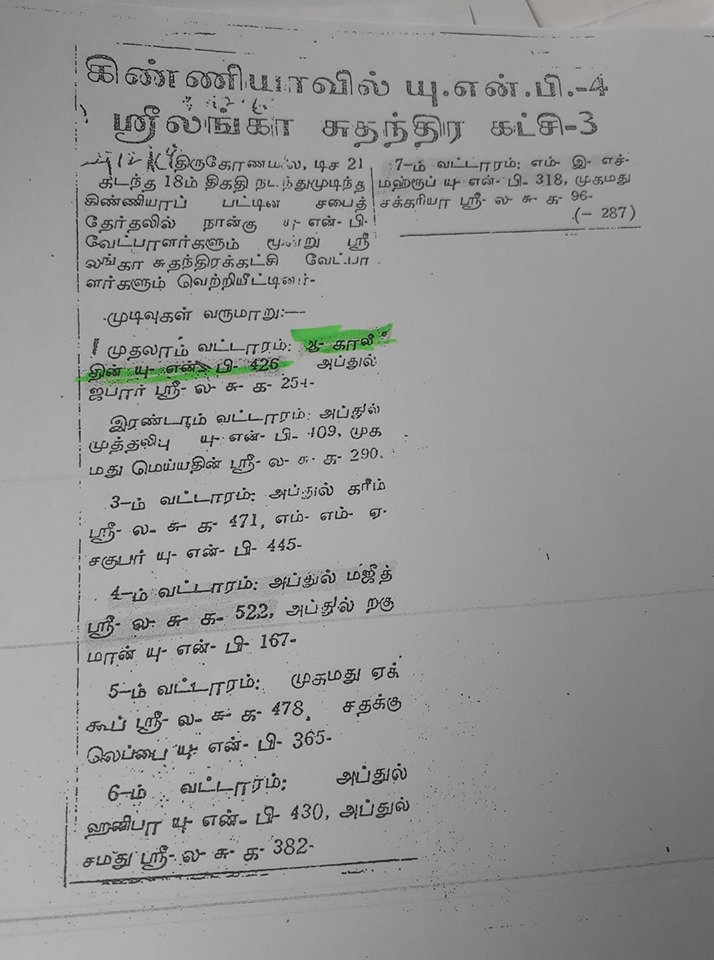 கிண்ணியாவில் யு.என்.பி.-4
ஸ்ரீலங்கா சுதந்திர கட்சி-3
(திருகோணமலை, டிச 21
கடந்த 18ம் திகதி நடந்துமுடிந்த
கிண்ணியாப் பட்டின சபைத்
தேர்தலில் நான்கு யு- என்- பி-
வேட்பாளர்களும் மூன்று ஸ்ரீ
லங்கா சுதந்திரக்கட்சி வேட்பா
ளர்களும் வெற்றியீட்டினர்-
முடிவுகள் வருமாறு:—
முதலாம் வட்டாரம்: காலி
தின் யு- என்- பி- 426 அப்துல்
ஜபார் ஸ்ரீ- ல- சு- க- 254-
இரண்டாம் வட்டாரம்: அப்துல்
முத்தலிபு யு- என்- பி- 409, முக
மது மெய்யதின் ஸ்ரீ- ல- சு- க- 290.
3-ம் வட்டாரம்: அப்துல் கரீம்
ஸ்ரீ- ல- சு- க- 471, எம்- எம்- ஏ-
சகுபர் யு- என்- பி- 445-
4-ம் வட்டாரம்: அப்துல் மஜீத்
ஸ்ரீ- ல- சு- க- 522, அப்துல் றகு
மான் யு- என்- பி- 167-
5-ம் வட்டாரம்: முகமது ஏக்
கூப் ஸ்ரீ- ல- சு- க- 478, சதக்கு
லெப்பை யு- என்- பி- 365-
6-ம் வட்டாரம்: அப்துல்
ஹனிபா யு- என்- பி- 430, அப்துல்
சமது ஸ்ரீ- ல- சு- க- 382-
7-ம் வட்டாரம்: எம்- இ- எச்-
மஹ்ரூப் யு- என்- பி- 318, முகமது
சக்கரியா ஸ்ரீ- ல- சு- க- 96-
(- 287)